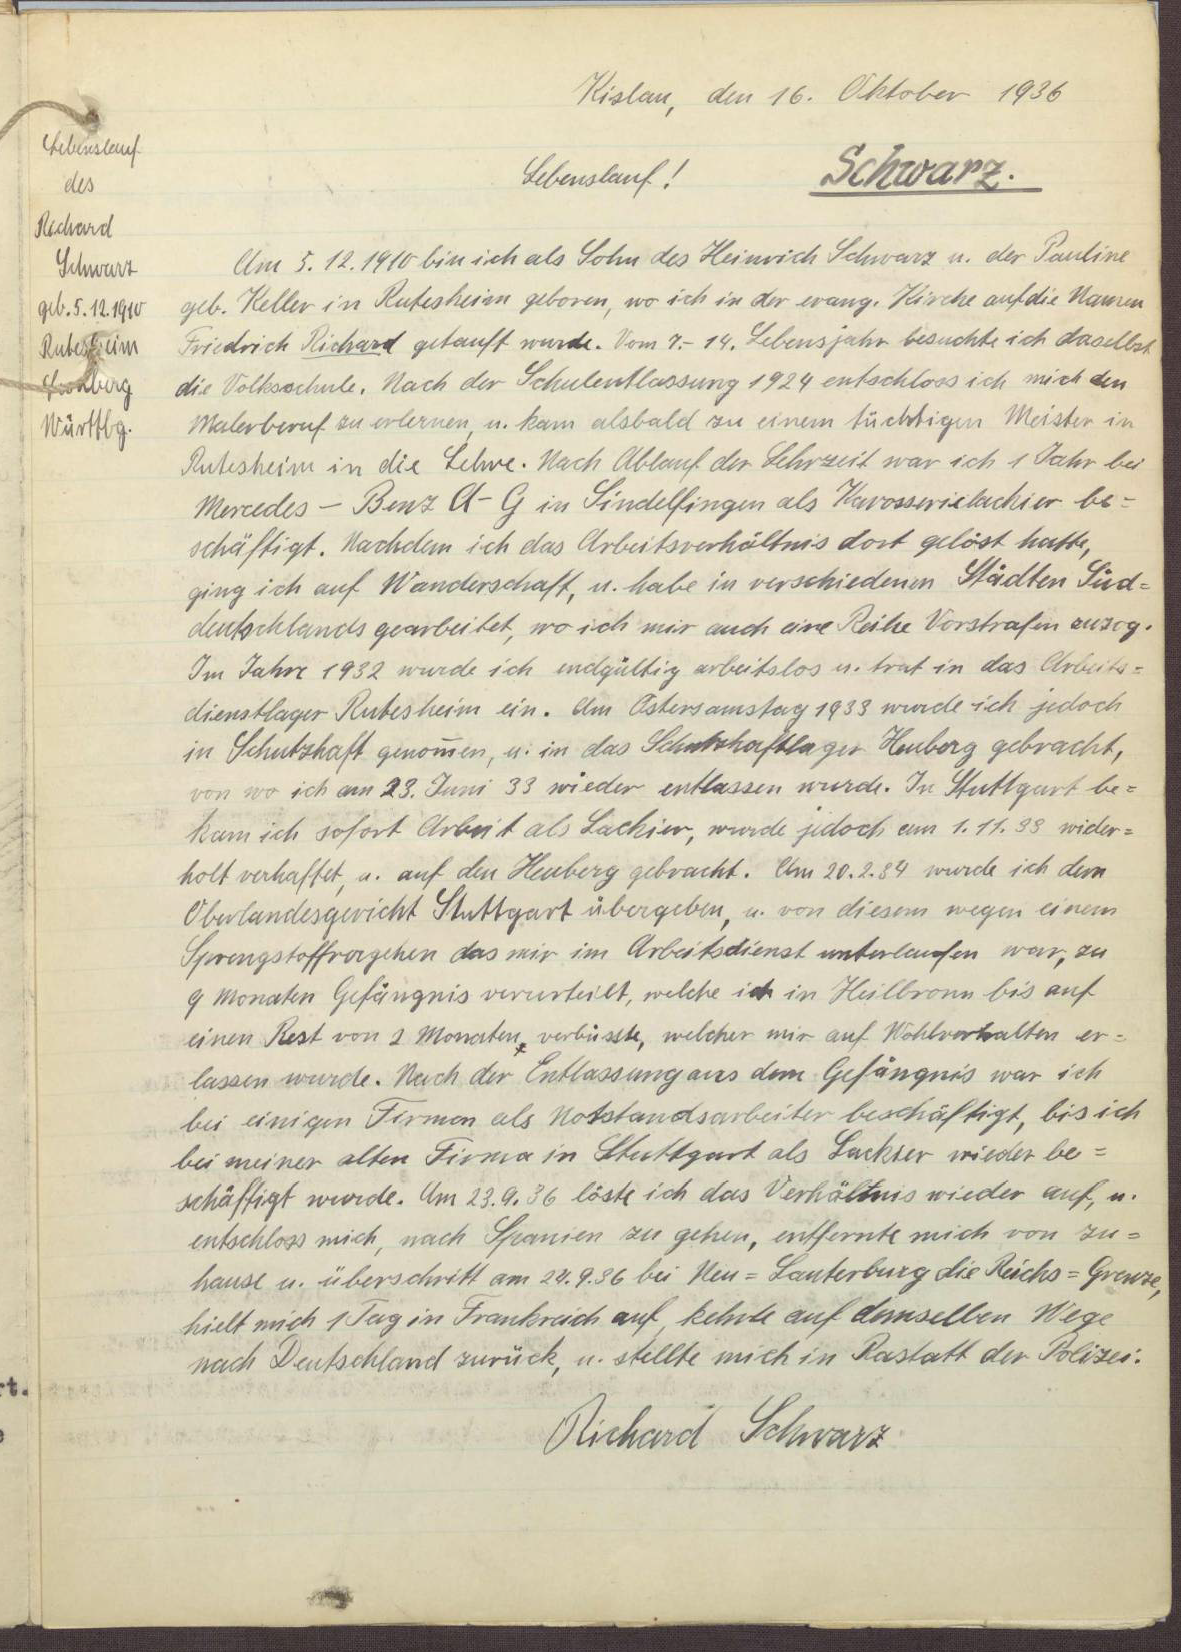 Kislau, den 16. Oktober 1936
Lebenslauf
des
Richard
Schwarz
geb. 5.12.1910
Rutesheim
Leonberg
Württbg.
Lebenslauf!
Schwarz.
Am 5.12.1910 bin ich als Sohn des Heinrich Schwarz u. der Pauline
geb. Keller in Rutesheim geboren, wo ich in der evang. Kirche auf die Namen
Friedrich Richard getauft wurde. Vom 7.-14. Lebensjahr besuchte ich daselbst
die Volksschule. Nach der Schulentlassung 1924 entschloss ich mich den
Malerberuf zu erlernen, u. kam alsbald zu einem tüchtigen Meister in
Rutesheim in die Lehre. Nach Ablauf der Lehrzeit war ich 1 Jahr bei
Mercedes - Benz A-G in Sindelfingen als Karosserielackier be=
schäftigt. Nachdem ich das Arbeitsverhältnis dort gelöst hatte,
ging ich auf Wanderschaft, u. habe in verschiedenen Städten Süd=
deutschlands gearbeitet, wo ich mir auch eine Reihe Vorstrafen zuzog.
Im Jahre 1932 wurde ich endgültig arbeitslos u. trat in das Arbeits=
dienstlager Rutesheim ein. Am Ostersamstag 1933 wurde ich jedoch
in Schutzhaft genom̄en, u. in das Schutzhaftlager Heuberg gebracht,
von wo ich am 23. Juni 33 wieder entlassen wurde. In Stuttgart be=
kam ich sofort Arbeit als Lackier, wurde jedoch am 1.11.33 wider=
holt verhaftet, u. auf den Heuberg gebracht. Am 20.2.34 wurde ich dem
Oberlandesgericht Stuttgart übergeben, u. von diesem wegen einem
Sprengstoffvergehen das mir im Arbeitsdienst unterlaufen war, zu
9 Monaten Gefängnis verurteilt, welche ich in Heilbronn bis auf
einen Rest von 2 Monaten, verbüsste, welcher mir auf Wohlverhalten er=
lassen wurde. Nach der Entlassung aus dem Gefängnis war ich
bei einigen Firmen als Notstandsarbeiter beschäftigt, bis ich
bei meiner alten Firma in Stuttgart als Lackier wieder be=
schäftigt wurde. Am 23.9.36 löste ich das Verhältnis wieder auf, u.
entschloss mich, nach Spanien zu gehen, entfernte mich von zu=
hause u. überschritt am 27.9.36 bei Neu=Lauterburg die Reichs=Grenze,
hielt mich 1 Tag in Frankreich auf, kehrte auf demselben Wege
nach Deutschland zurück, u. stellte mich in Rastatt der Polizei.
Richard Schwarz
rt.